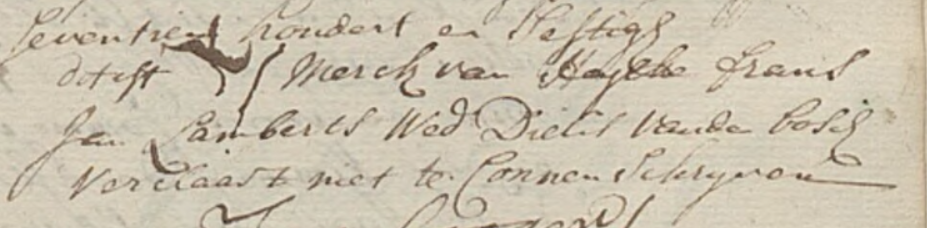 Seventien hondert en Sestigh
dit ist Merck van Frans
Jan Lamberts Wed Dielis vande bosch
verclaast niet te Connen Schryven